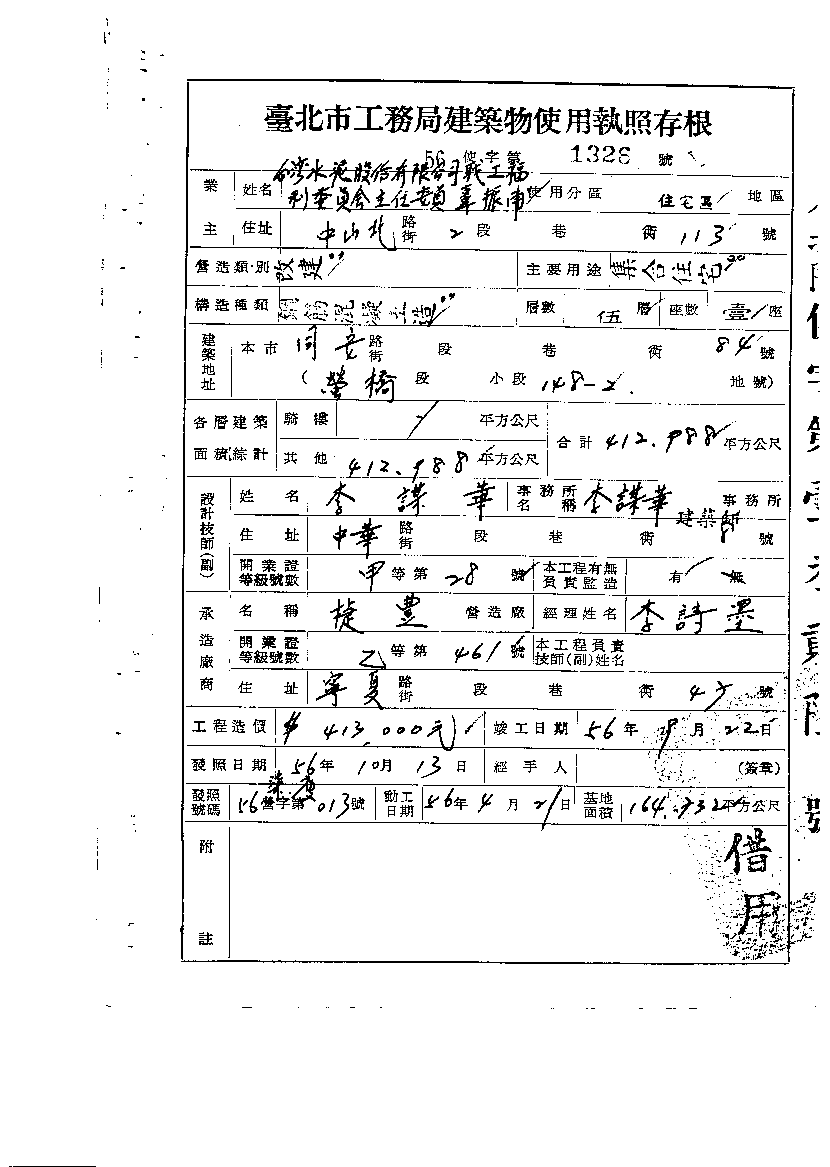 臺北市工務局建築物使用執照存根
56 使字第 1326 號
業主 姓名 台灣水泥股份有限公司職工福利委員會主任委員 使用分區 住宅區 地區
住址 中山北 路街 2 段 巷 衖 113 號
營造類別 改建 主要用途 集合住宅
構造種類 鋼筋混凝土造 層數 伍 層 座數 壹 座
建築地址 本市 同安 路街 段 巷 衖 84 號
(螢橋 段 小段 148-2 地號)
各層建築面積綜計 騎樓 平方公尺 合計 412.988 平方公尺
其他 412.988 平方公尺
設計技師(副) 姓名 李謀華 事務所名稱 李謀華建築師 事務所
住址 中華 路街 段 巷 衖 8 號
開業證等級號數 甲 等第 28 號 本工程有無負責監造 有 無
承造廠商 名稱 捷豐 營造廠 經理姓名 李詩墨
開業證等級號數 乙 等第 461 號 本工程負責技師(副)姓名
住址 寧夏 路街 段 巷 衖 45 號
工程造價 $413,000元 竣工日期 56年 9月 22日
發照日期 56年 10月 13日 經手人 (簽章)
發照號碼 56營字第 013號 動工日期 56年 4月 21日 基地面積 164.932 平方公尺
附註
借用
號